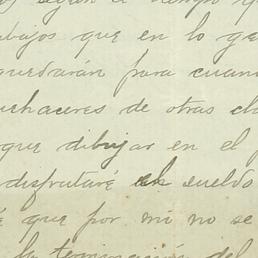 según el tiempo
abajos que en lo ge
quedarán para cuan
uehaceres de otras cla
que dibujar en el
disfrutaré el sueldo
que por mi no se
la terminación del